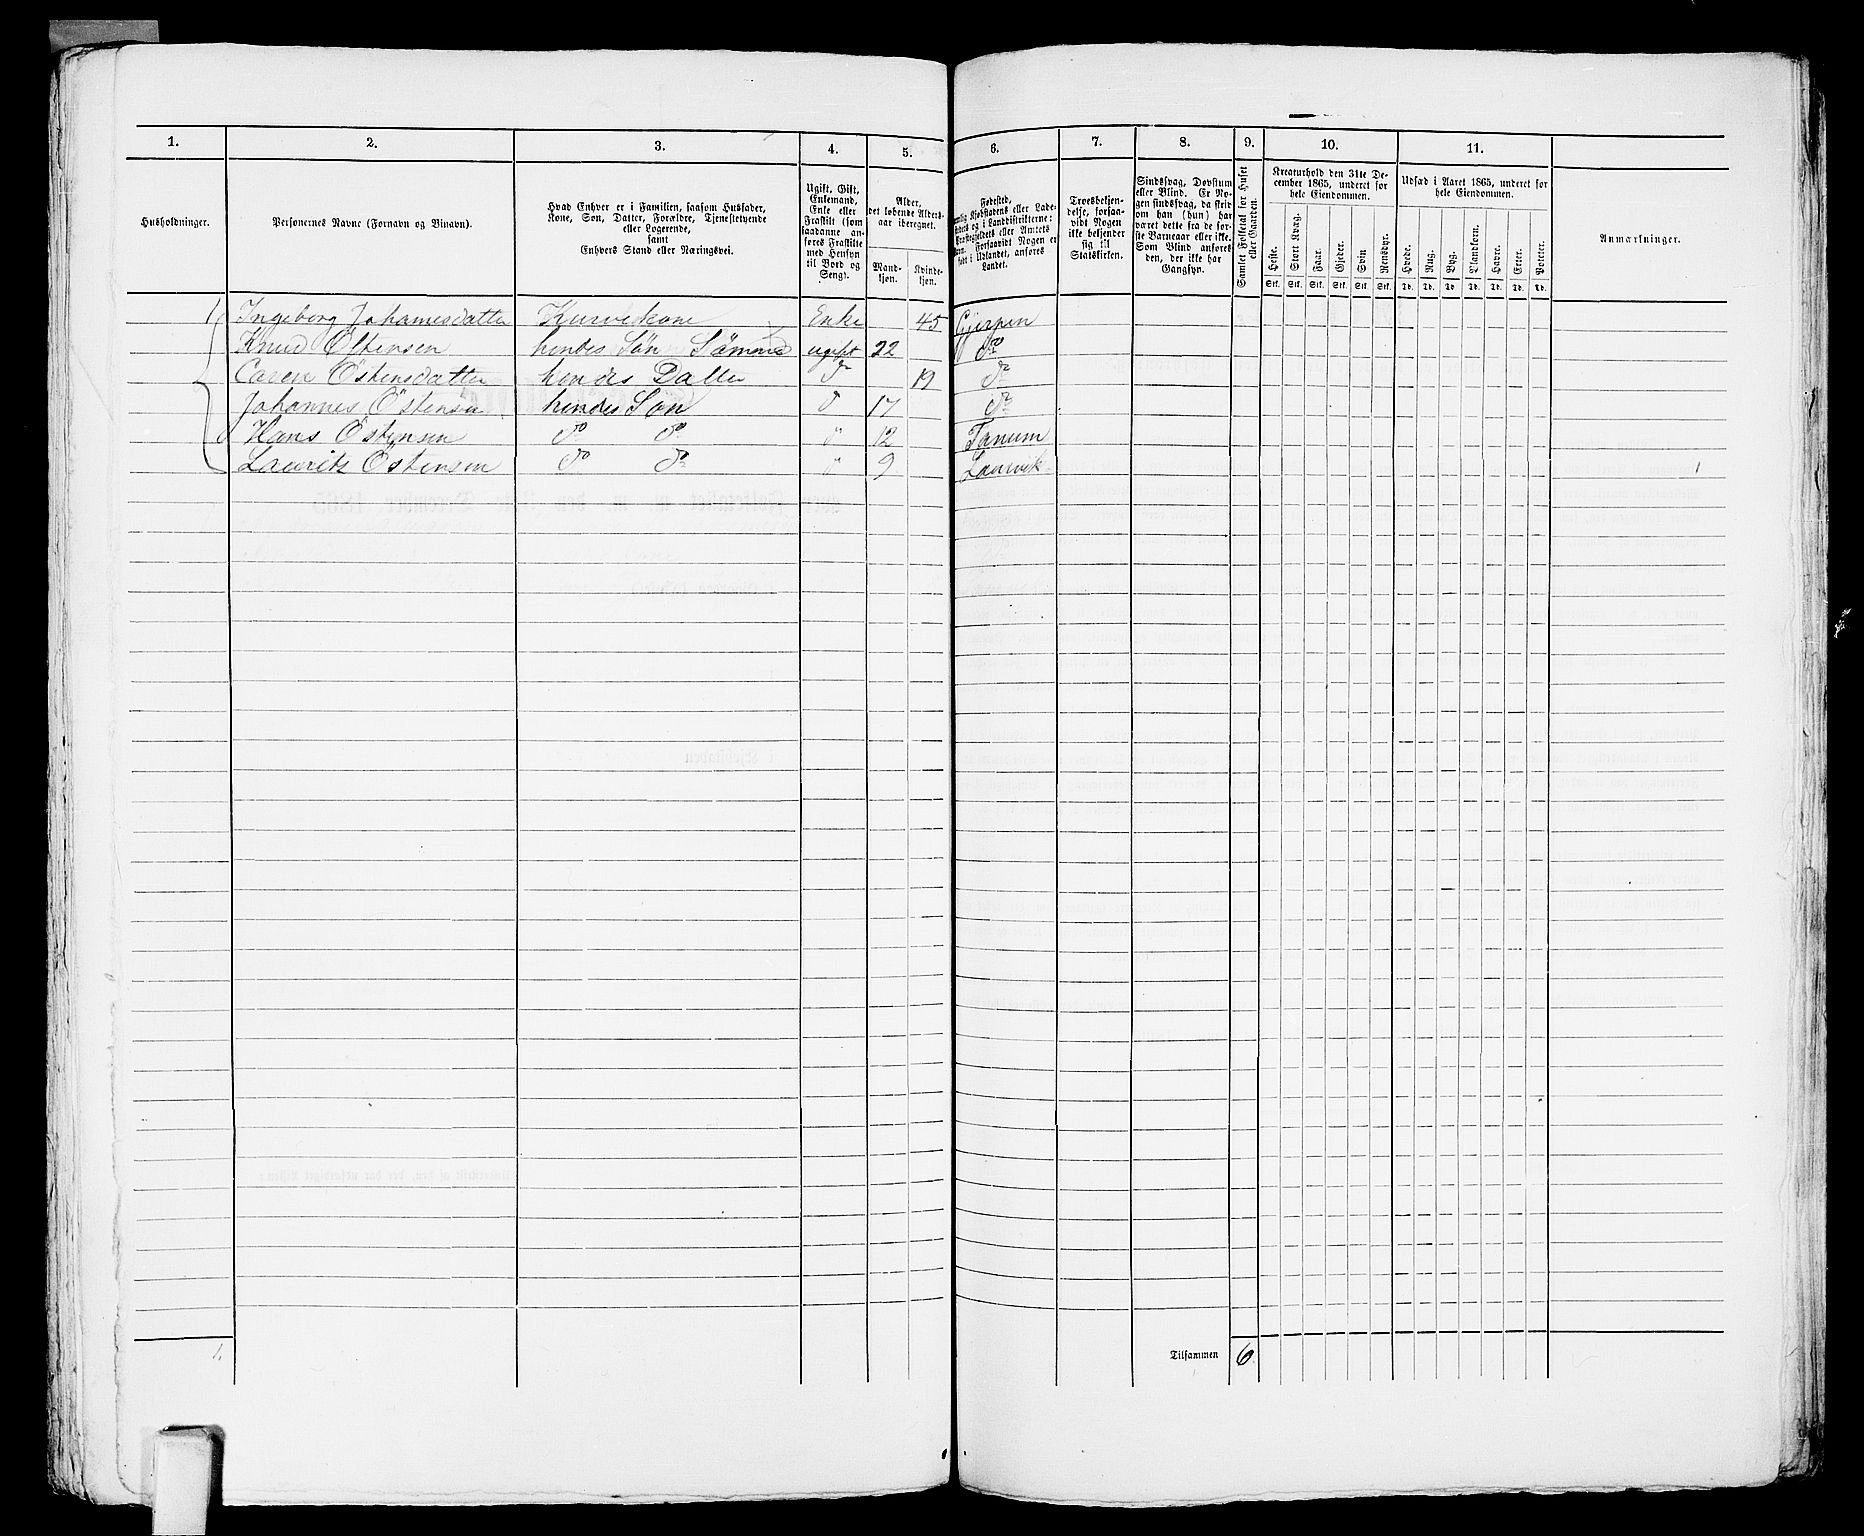 1. 2. 3. 4. 5. 6. 7. 8. 9. 10. 11.
Husholdninger.
Personernes Navne (Fornavn og Binavn).
Hvad Enhver er i Familien, saasom Husfader,
Kone, Søn, Datter, Forældre, Tjenestetyende
eller Logerende,
samt
Enhvers Stand eller Næringsvei.
Ugift, Gift,
Enkemand,
Enke eller
Fraskilt (som
saadanne an-
føres Fraskilte
med Hensyn
til Bord og
Seng).
Alder,
det løbende Alders-
aar iberegnet.
Mand-
kjøn.
Kvinde-
kjøn.
Fødested,
nemlig Kjøbstadens eller Lade-
stedets og i Landdistrikterne:
Præstegjeldets eller Amtets
Navn. Forsaavidt Nogen er
født i Udlandet, anføres
Landet.
Troesbekjen-
delse, forsaa-
vidt Nogen
ikke bekjender
sig til
Statskirken.
Sindssvag, Døvstum
eller Blind. Er No-
gen sindssvag, da skriv
om han (hun) har
været dette fra de før-
ste Barneaar eller ikke.
Som Blind anføres
den, der ikke har
Gangsyn.
Samlet Folketal for Huset
eller Gaarden.
Kreaturhold den 31te De-
cember 1865, underet for
hele Eiendommen.
Heste. Stort Kvæg. Faar. Gjeder. Svin Rensdyr.
Stk. Stk. Stk. Stk. Stk. Stk.
Udsæd i Aaret 1865, underet for
hele Eiendommen.
Hvede. Rug. Byg. Blandkorn. Havre. Erter. Poteter.
Td. Td. Td. Td. Td. Td. Td.
Anmærkninger.
1 Ingeborg Johannesdatter Kurvekone Enke 45 Gjerpen
Knud Østensen hendes Søn Sømmand ugift 22 do
Caren Østensdatter hendes Datter do 19 do
Johannes Østensen hendes Søn do 17 do
Hans Østensen do do do 12 Tanum
Laurits Østensen do do do 9 Laurvik 1
1. Tilsammen 6